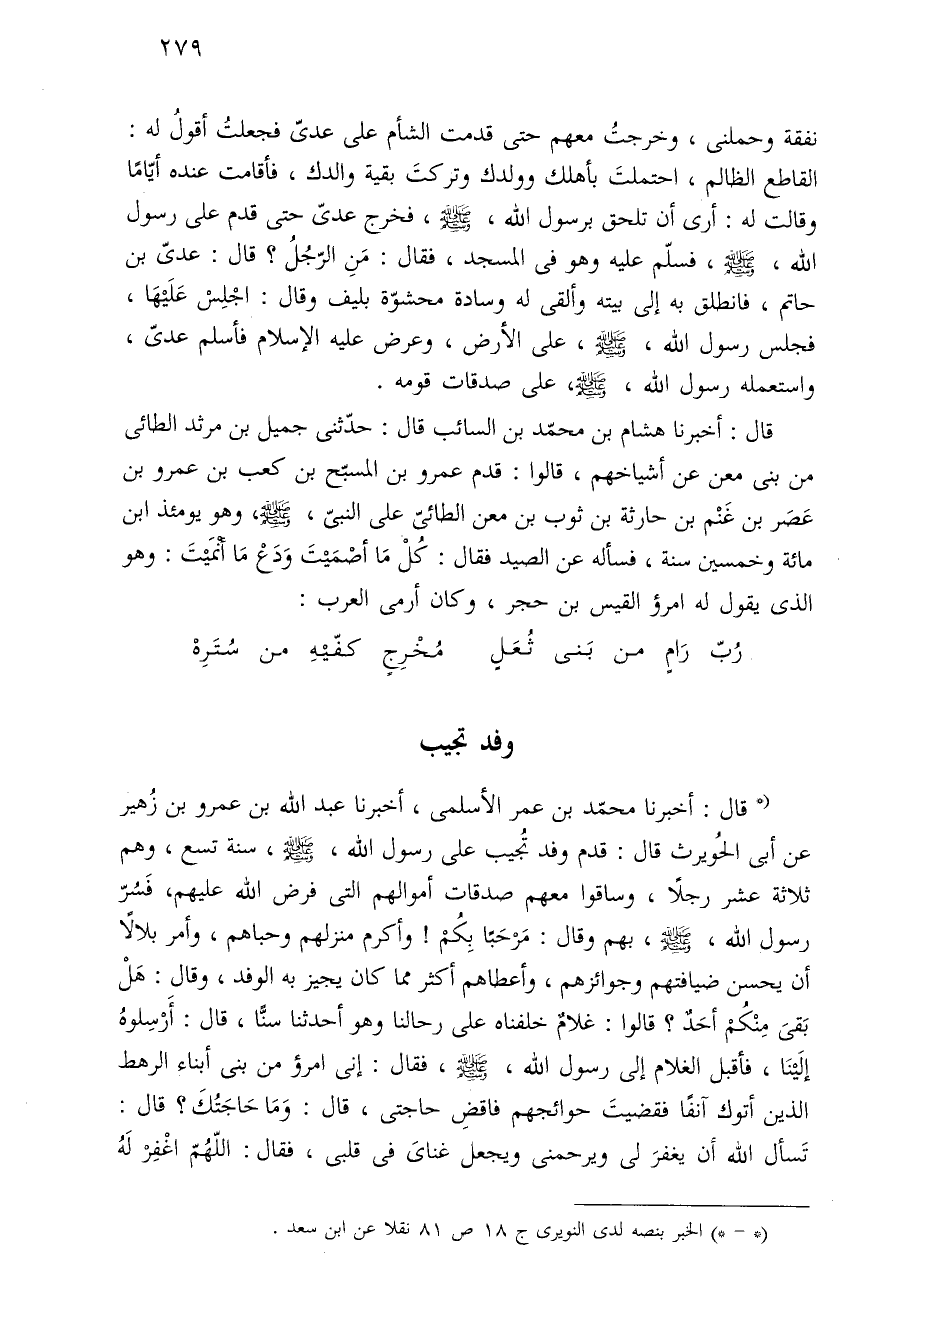 ٢٧٩
نفقة وحملنى ، وخرجتُ معهم حتى قدمت الشأم على عدىّ فجعلتُ أقولُ له :
القاطع الظالم ، احتملتَ بأهلك وولدك وتركتَ بقية والدك ، فأقامت عنده أيّامًا
وقالت له : أرى أن تلحق برسول الله ، ﷺ ، فخرج عدىّ حتى قدم على رسول
الله ، ﷺ ، فسلّم عليه وهو فى المسجد ، فقال : مَنِ الرّجُلُ ؟ قال : عدىّ بن
حاتم ، فانطلق به إلى بيته وألقى له وسادة محشوّة بليف وقال : اجْلِسْ عَلَيْهَا ،
فجلس رسول الله ، ﷺ ، على الأرض ، وعرض عليه الإسلام فأسلم عدىّ ،
واستعمله رسول الله ، ﷺ، على صدقات قومه .
قال : أخبرنا هشام بن محمّد بن السائب قال : حدّثنى جميل بن مرثد الطائى
من بنى معن عن أشياخهم ، قالوا : قدم عمرو بن المسبّح بن كعب بن عمرو بن
عَصَر بن غَنْم بن حارثة بن ثوب بن معن الطائىّ على النبىّ ، ﷺ، وهو يومئذ ابن
مائة وخمسين سنة ، فسأله عن الصيد فقال : كُلْ مَا أصْمَيْتَ وَدَعْ مَا أنْمَيْتَ : وهو
الذى يقول له امرؤ القيس بن حجر ، وكان أرمى العرب :
رُبّ رَامٍ من بَنى ثُعَلٍ مُخْرِجٍ كفّيْهِ من سُتَرِهْ
وفد تجيب
(* قال : أخبرنا محمّد بن عمر الأسلمى ، أخبرنا عبد الله بن عمرو بن زُهير
عن أبى الحُويرث قال : قدم وفد تُجيب على رسول الله ، ﷺ ، سنة تسع ، وهم
ثلاثة عشر رجلًا ، وساقوا معهم صدقات أموالهم التى فرض الله عليهم، فَسُرّ
رسول الله ، ﷺ ، بهم وقال : مَرْحَبًا بِكُمْ ! وأكرم منزلهم وحباهم ، وأمر بلالًا
أن يحسن ضيافتهم وجوائزهم ، وأعطاهم أكثر مما كان يجيز به الوفد ، وقال : هَلْ
بَقىَ مِنْكُمْ أحَدٌ ؟ قالوا : غلامٌ خلفناه على رحالنا وهو أحدثنا سنًّا ، قال : أَرْسِلوهُ
إلَيْنَا ، فأقبل الغلام إلى رسول الله ، ﷺ ، فقال : إنى امرؤ من بنى أبناء الرهط
الذين أتوك آنفًا فقضيتَ حوائجهم فاقضِ حاجتى ، قال : وَمَا حَاجَتُكَ ؟ قال :
تَسأل الله أن يغفرَ لى ويرحمنى ويجعل غناىَ فى قلبى ، فقال : اللّهُمّ اغْفِرْ لَهُ
(* - *) الخبر بنصه لدى النويرى ج ١٨ ص ٨١ نقلا عن ابن سعد .